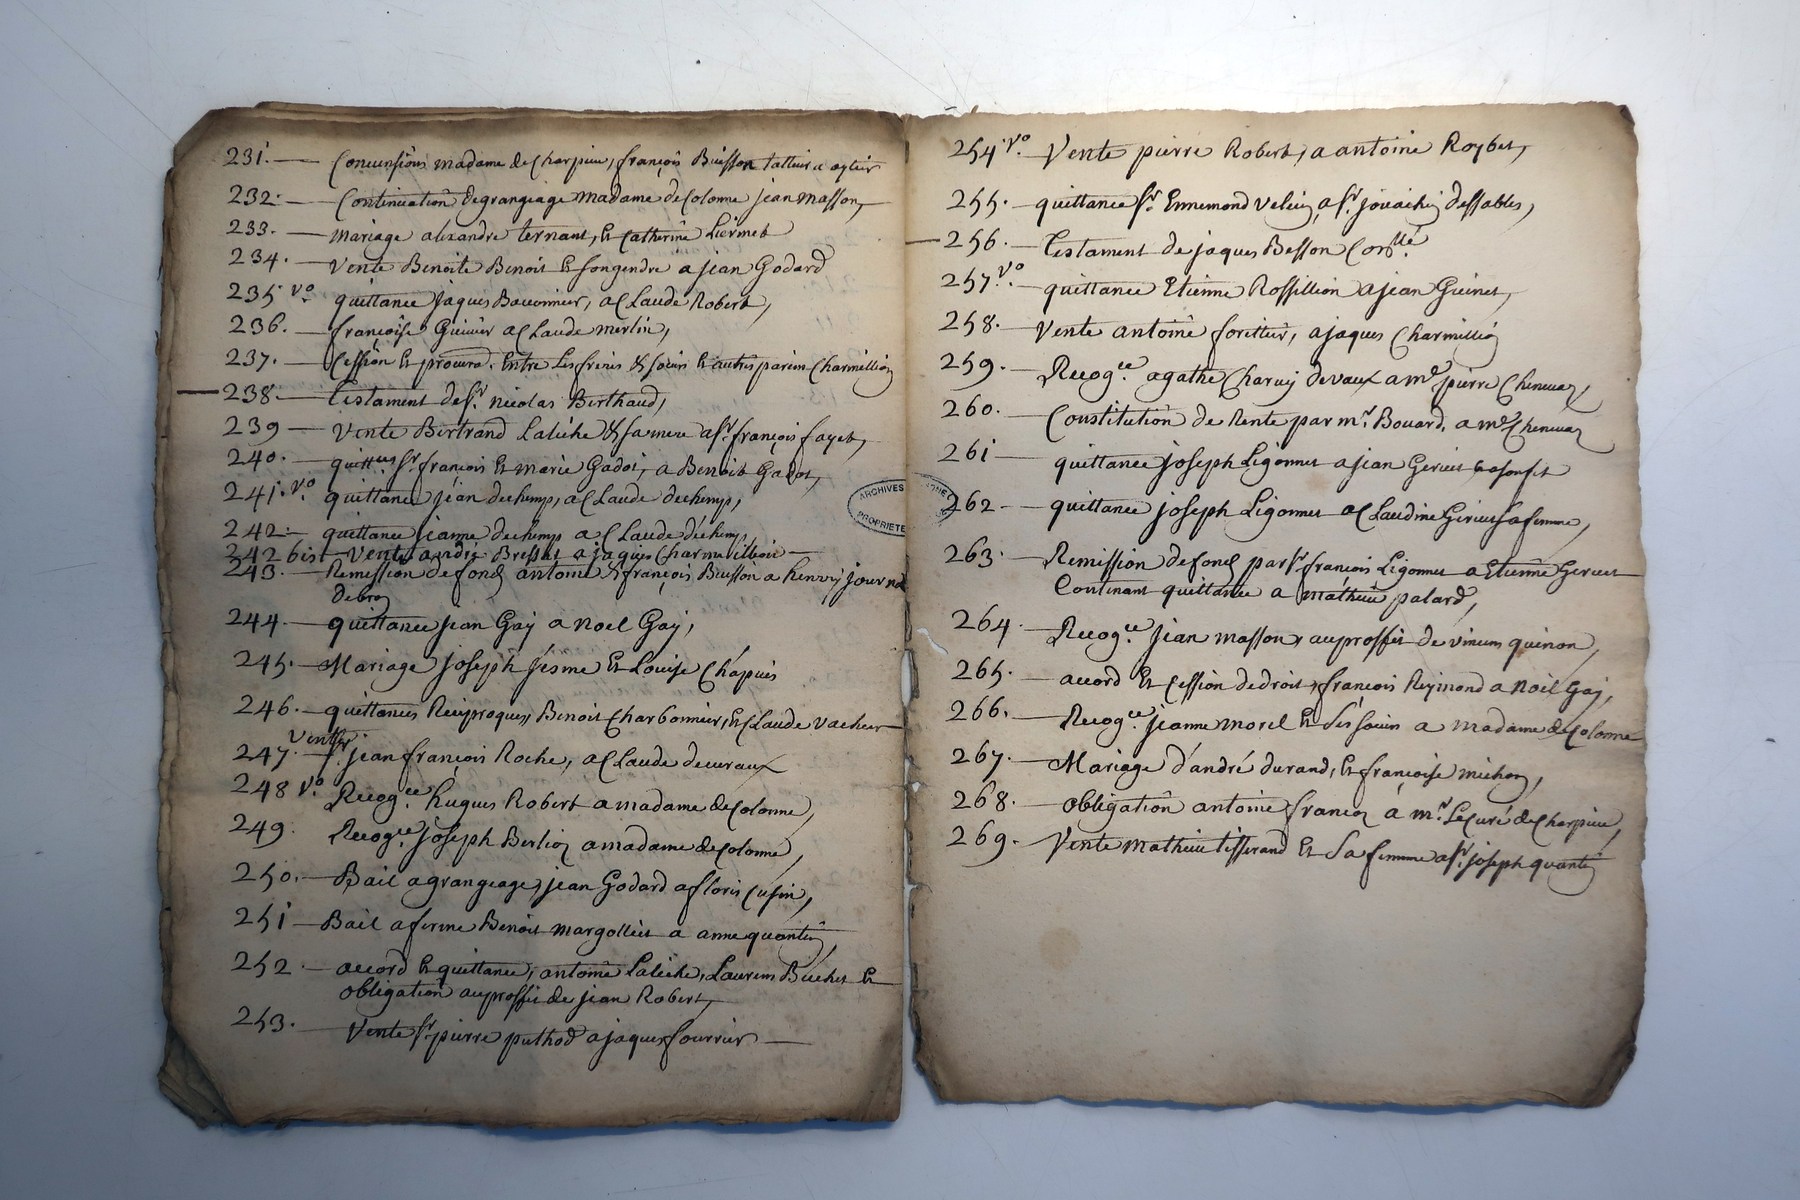 231. — Concensions madame de Charpieu, françois Buisson
232. — Continuation de grangeage madame de Colonne jean masson,
233. — mariage alexandre ternant, Et Catherine Liermet
234. — Vente Benoite Benoit Et songendre a jean Godard
235 vo. quittance jaques Bauonnier, a Claude Robert,
236. — françoise a Claude merlin,
237. — Cession Et procura. Entre Les freres & soeurs Et autres parens Charmillion
238. — testament de sr. nicolas Berthaud,
239 — Vente Bertrand Laliche & sa mere a sr. françois fayet,
240. — quittces sr. françois Et marie Gadoi, a Benoit Gadot,
241. vo. quittance jean dechemp, a Claude dechemp,
242 — quittance jeanne dechemp a Claude dechemp,
242 bis — Vente andré Bressat a jaques Charmillion —
243. — Remission de fond antoine & françois Buisson a henry journe
debron
244. — quittance jean Gay a noel Gay,
245. — Mariage joseph jesme Et Louise Chapuis
246. — quittances Reciproques, Benoit Charbonnier, Et Claude vacher
247. Vente sr. jean françois Roche, a Claude decuraux
248 vo. Recog.ce hugues Robert a madame de Colonne,
249. Recog.ce joseph Berlion a madame de Colonne,
250. — Bail a grangeage, jean Godard a floris Cusin,
251 — Bail a ferme Benoit margollier a anne quantin,
252. — accord Et quittance, antoine Laliche, Laurens Buchet Et
obligation au proffit de jean Robert,
253. — Vente sr. pierre puthod a jaques fourrier —
254. vo. Vente pierre Robert, a antoine Roybet,
255. — quittance sr. Ennemond Velin, a sr. jouachin dessables,
256. — testament de jaques Besson
257. vo. quittance Etienne Rossillion a jean Guinet,
258. — Vente antoine foretier, a jaques Charmillion
259. — Recog.ce agathe Charvy devaux a me. pierre Chenevaz,
260. — Constitution de Rente par mr. Bouard, a me. Chenevaz
261 — quittance joseph Ligonnet a jean Geriet
262 — quittance joseph Ligonnet a Claudine Geriet sa femme,
263. — Remission de fond par sr. françois Ligonnet a Etienne Geriet
Contenant quittance a mathieu palard,
264. — Recog.ce jean masson, au proffit de vincens quinon,
265. — accord Et Cession de droit, françois Reymond a noel Gay,
266. — Recog.ce jeanne morel Et Ses soeurs a madame de Colonne
267. — Mariage d'andré durand, Et françoise michon,
268. — obligation antoine françon à mr. Le Curé de Charpieu,
269. — Vente mathieu tisserand Et Sa femme a sr. joseph quantin
ARCHIVES
PROPRIETE